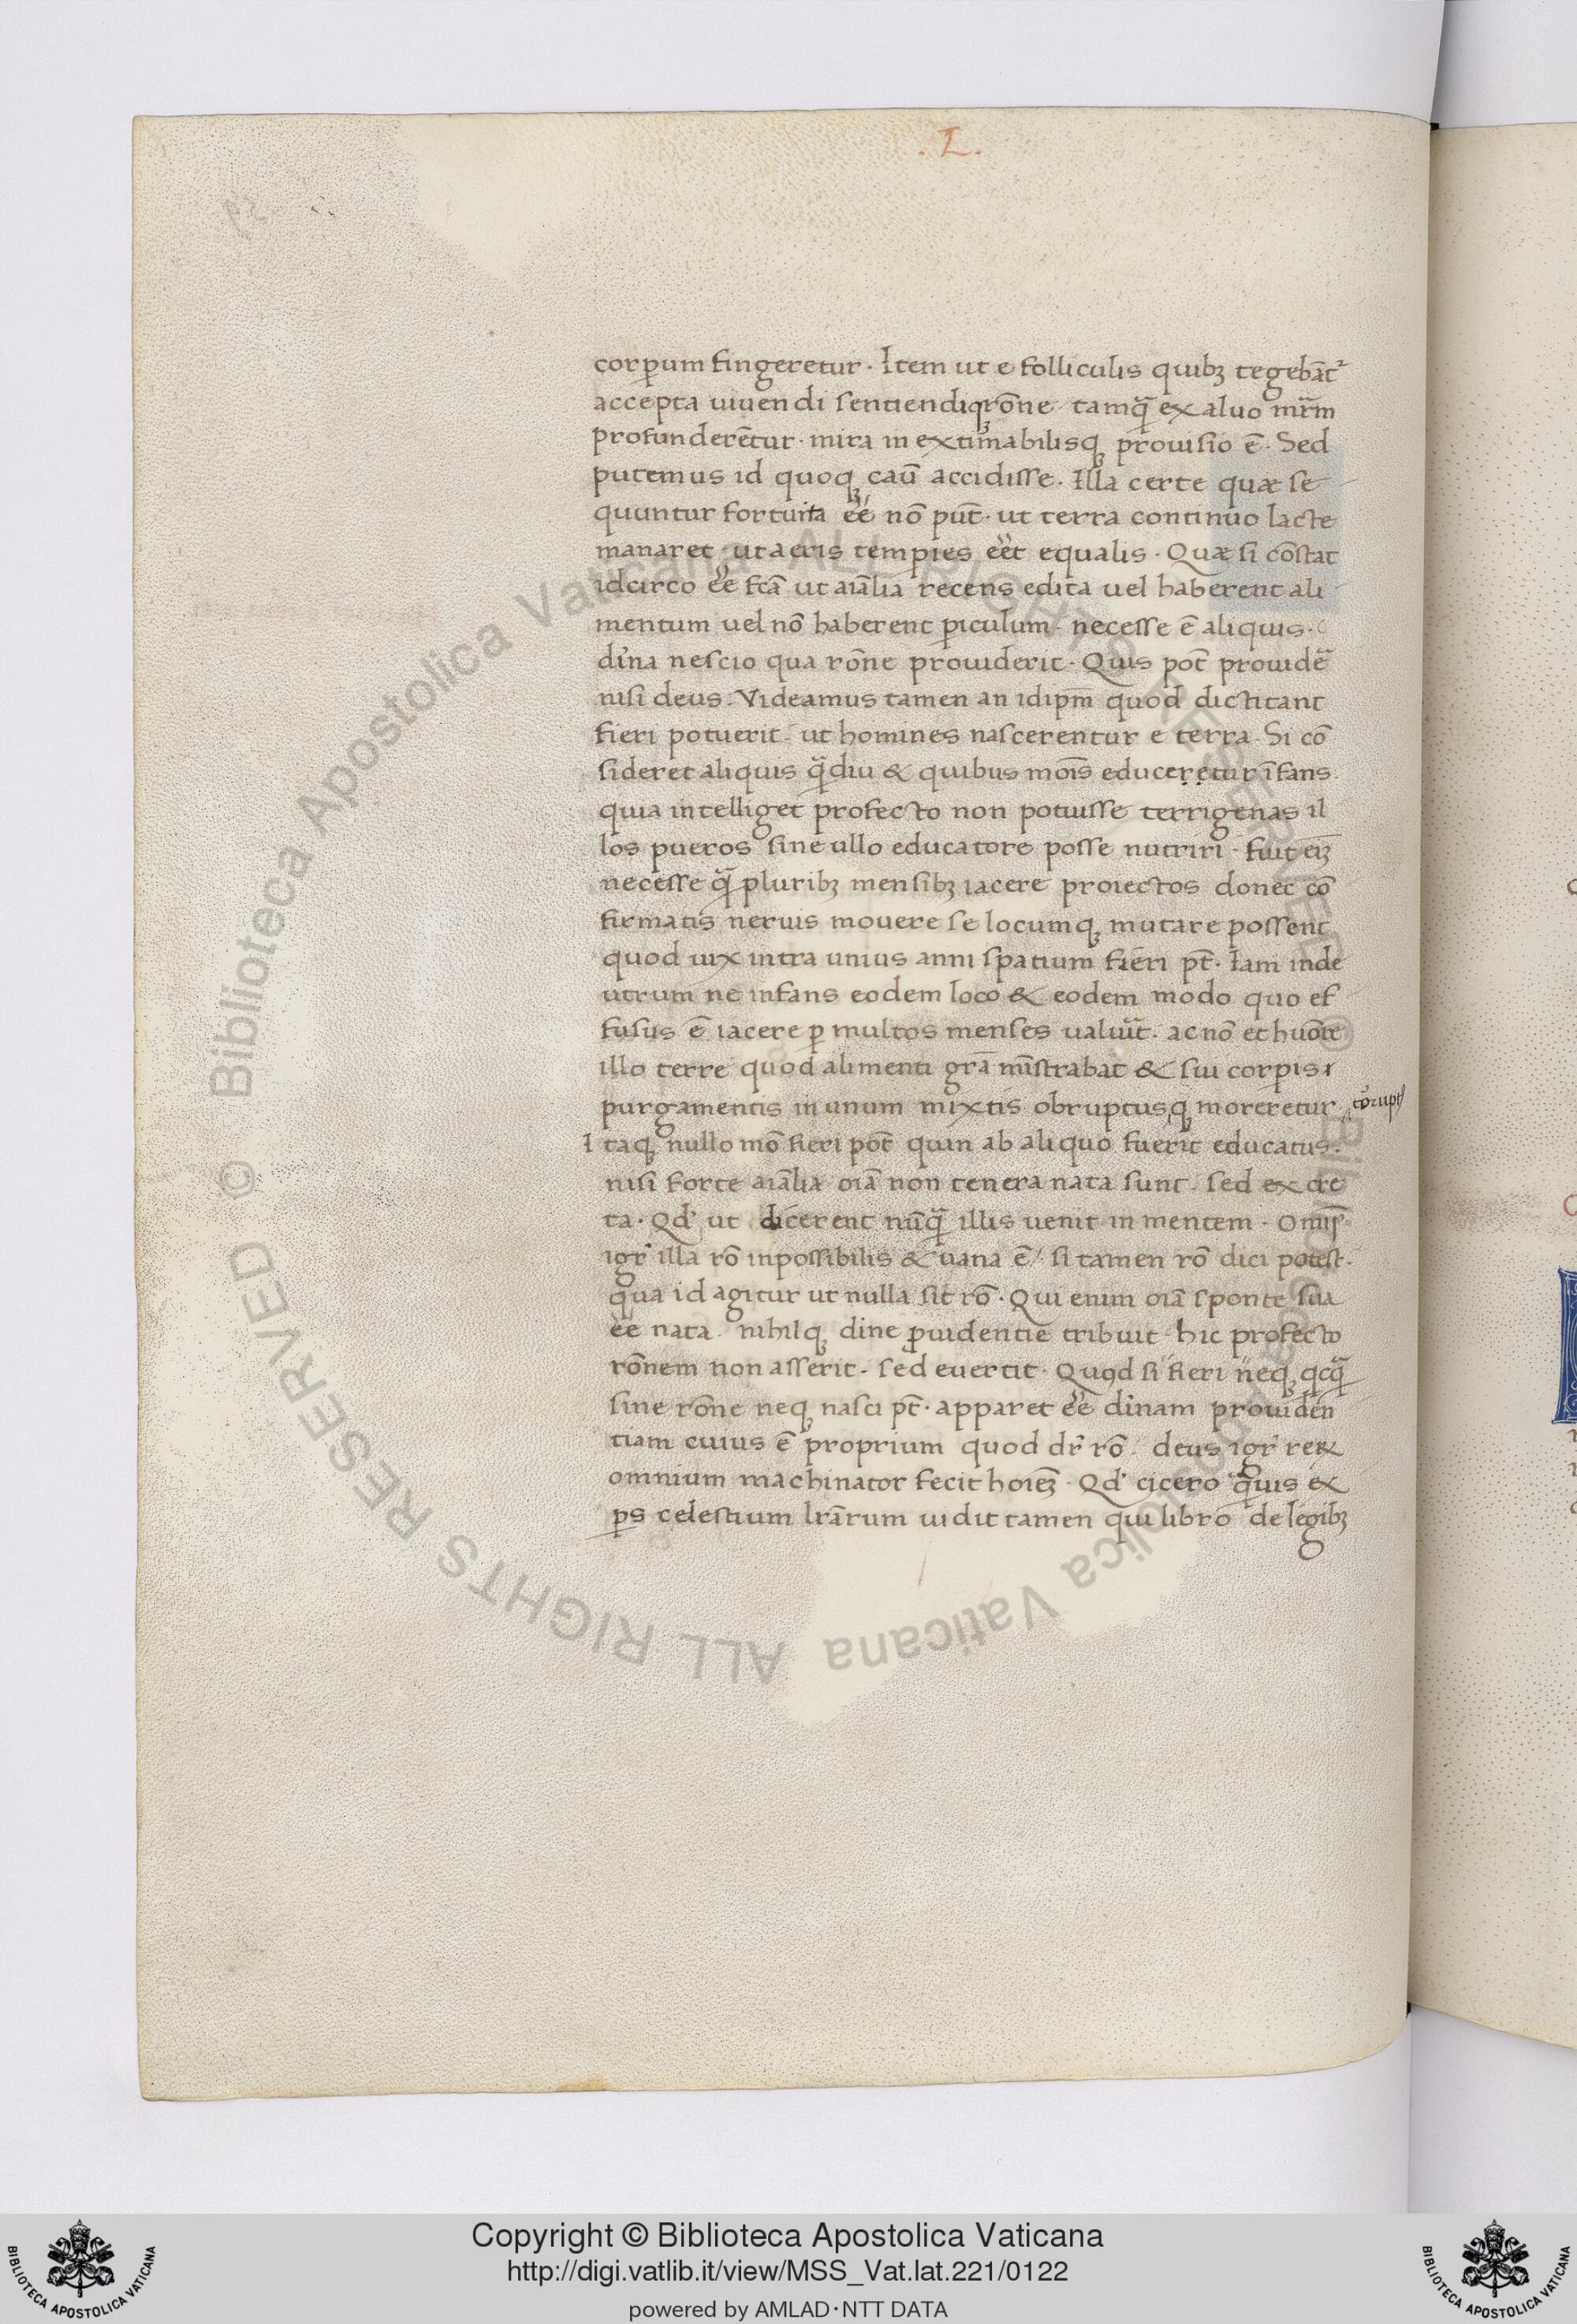 . L .
corꝑum fingeretur · Item ut e folliculis quibꝫ tegebāt᷑
accepta uiuendi sentiendiqꝫ rōne tamꝗ̄ ex aluo mr̄m
profunderētur · mira in extimabilisqꝫ prouisio ē · Sed
putemus id quoqꝫ caū accidisse · Illa certe quæ se
quuntur fortuita eē nō pūt · ut terra continuo lacte
manaret · ut aeris temꝑies eēt equalis · Quæ si cōstat
idcirco eē fcā ut aīalia recens edita uel haberent ali
mentum uel nō haberent ꝑiculum · necesse ē aliquis ·
diīna nescio qua rōne prouiderit · Quis pōt prouidē
nisi deus · Videamus tamen an idipm̄ quod dictitant
fieri potuerit · ut homines nascerentur e terra · Si cō
sideret aliquis ꝗ̄diu & quibus mōis educeretur īfans
quia intelliget profecto non potuisse terrigenas il
los pueros sine ullo educatore posse nutriri · fuit eīꝫ
necesse ꝗ̄ pluribꝫ mensibꝫ iacere proiectos donec cō
firmatis neruis mouere se locumqꝫ mutare possent
quod uix intra unius anni spatium fieri pt̄ · Iam inde
utrum ne infans eodem loco & eodem modo quo ef
fusus ē iacere ꝑ multos menses ualuīt · ac nō et huōre
illo terre quod alimenti grā mīstrabat & sui corꝑis
purgamentis in unum mixtis obruptusqꝫ moreretur corrupt᷒
Itaqꝫ nullo mō fieri pōt quin ab aliquo fuerit educatus ·
nisi forte aīalia oīa non tenera nata sunt · sed excre
ta · Qd̄ ut dicerent nūꝗ̄ illis uenit in mentem · Omīs
igr̄ illa rō inpossibilis & uana ē · si tamen rō dici potest ·
qua id agitur ut nulla sit rō · Qui enim oīa sponte sua
eē nata · nihilqꝫ diīne ꝓuidentie tribuit · hic profecto
rōnem non asserit · sed euertit · Quod si fieri neqꝫ qcꝗ̄
sine rōne neqꝫ nasci pt̄ · apparet eē diīnam prouiden
tiam cuius ē proprium quod dr̄ rō · deus igr̄ rex
omnium machinator fecit hoīeꝫ · Qd̄ cicero ꝗ̄uis ex
ꝑs celestium lrārum uidit tamen qui libro de legibꝫ
Copyright © Biblioteca Apostolica Vaticana
http://digi.vatlib.it/view/MSS_Vat.lat.221/0122
powered by AMLAD·NTT DATA